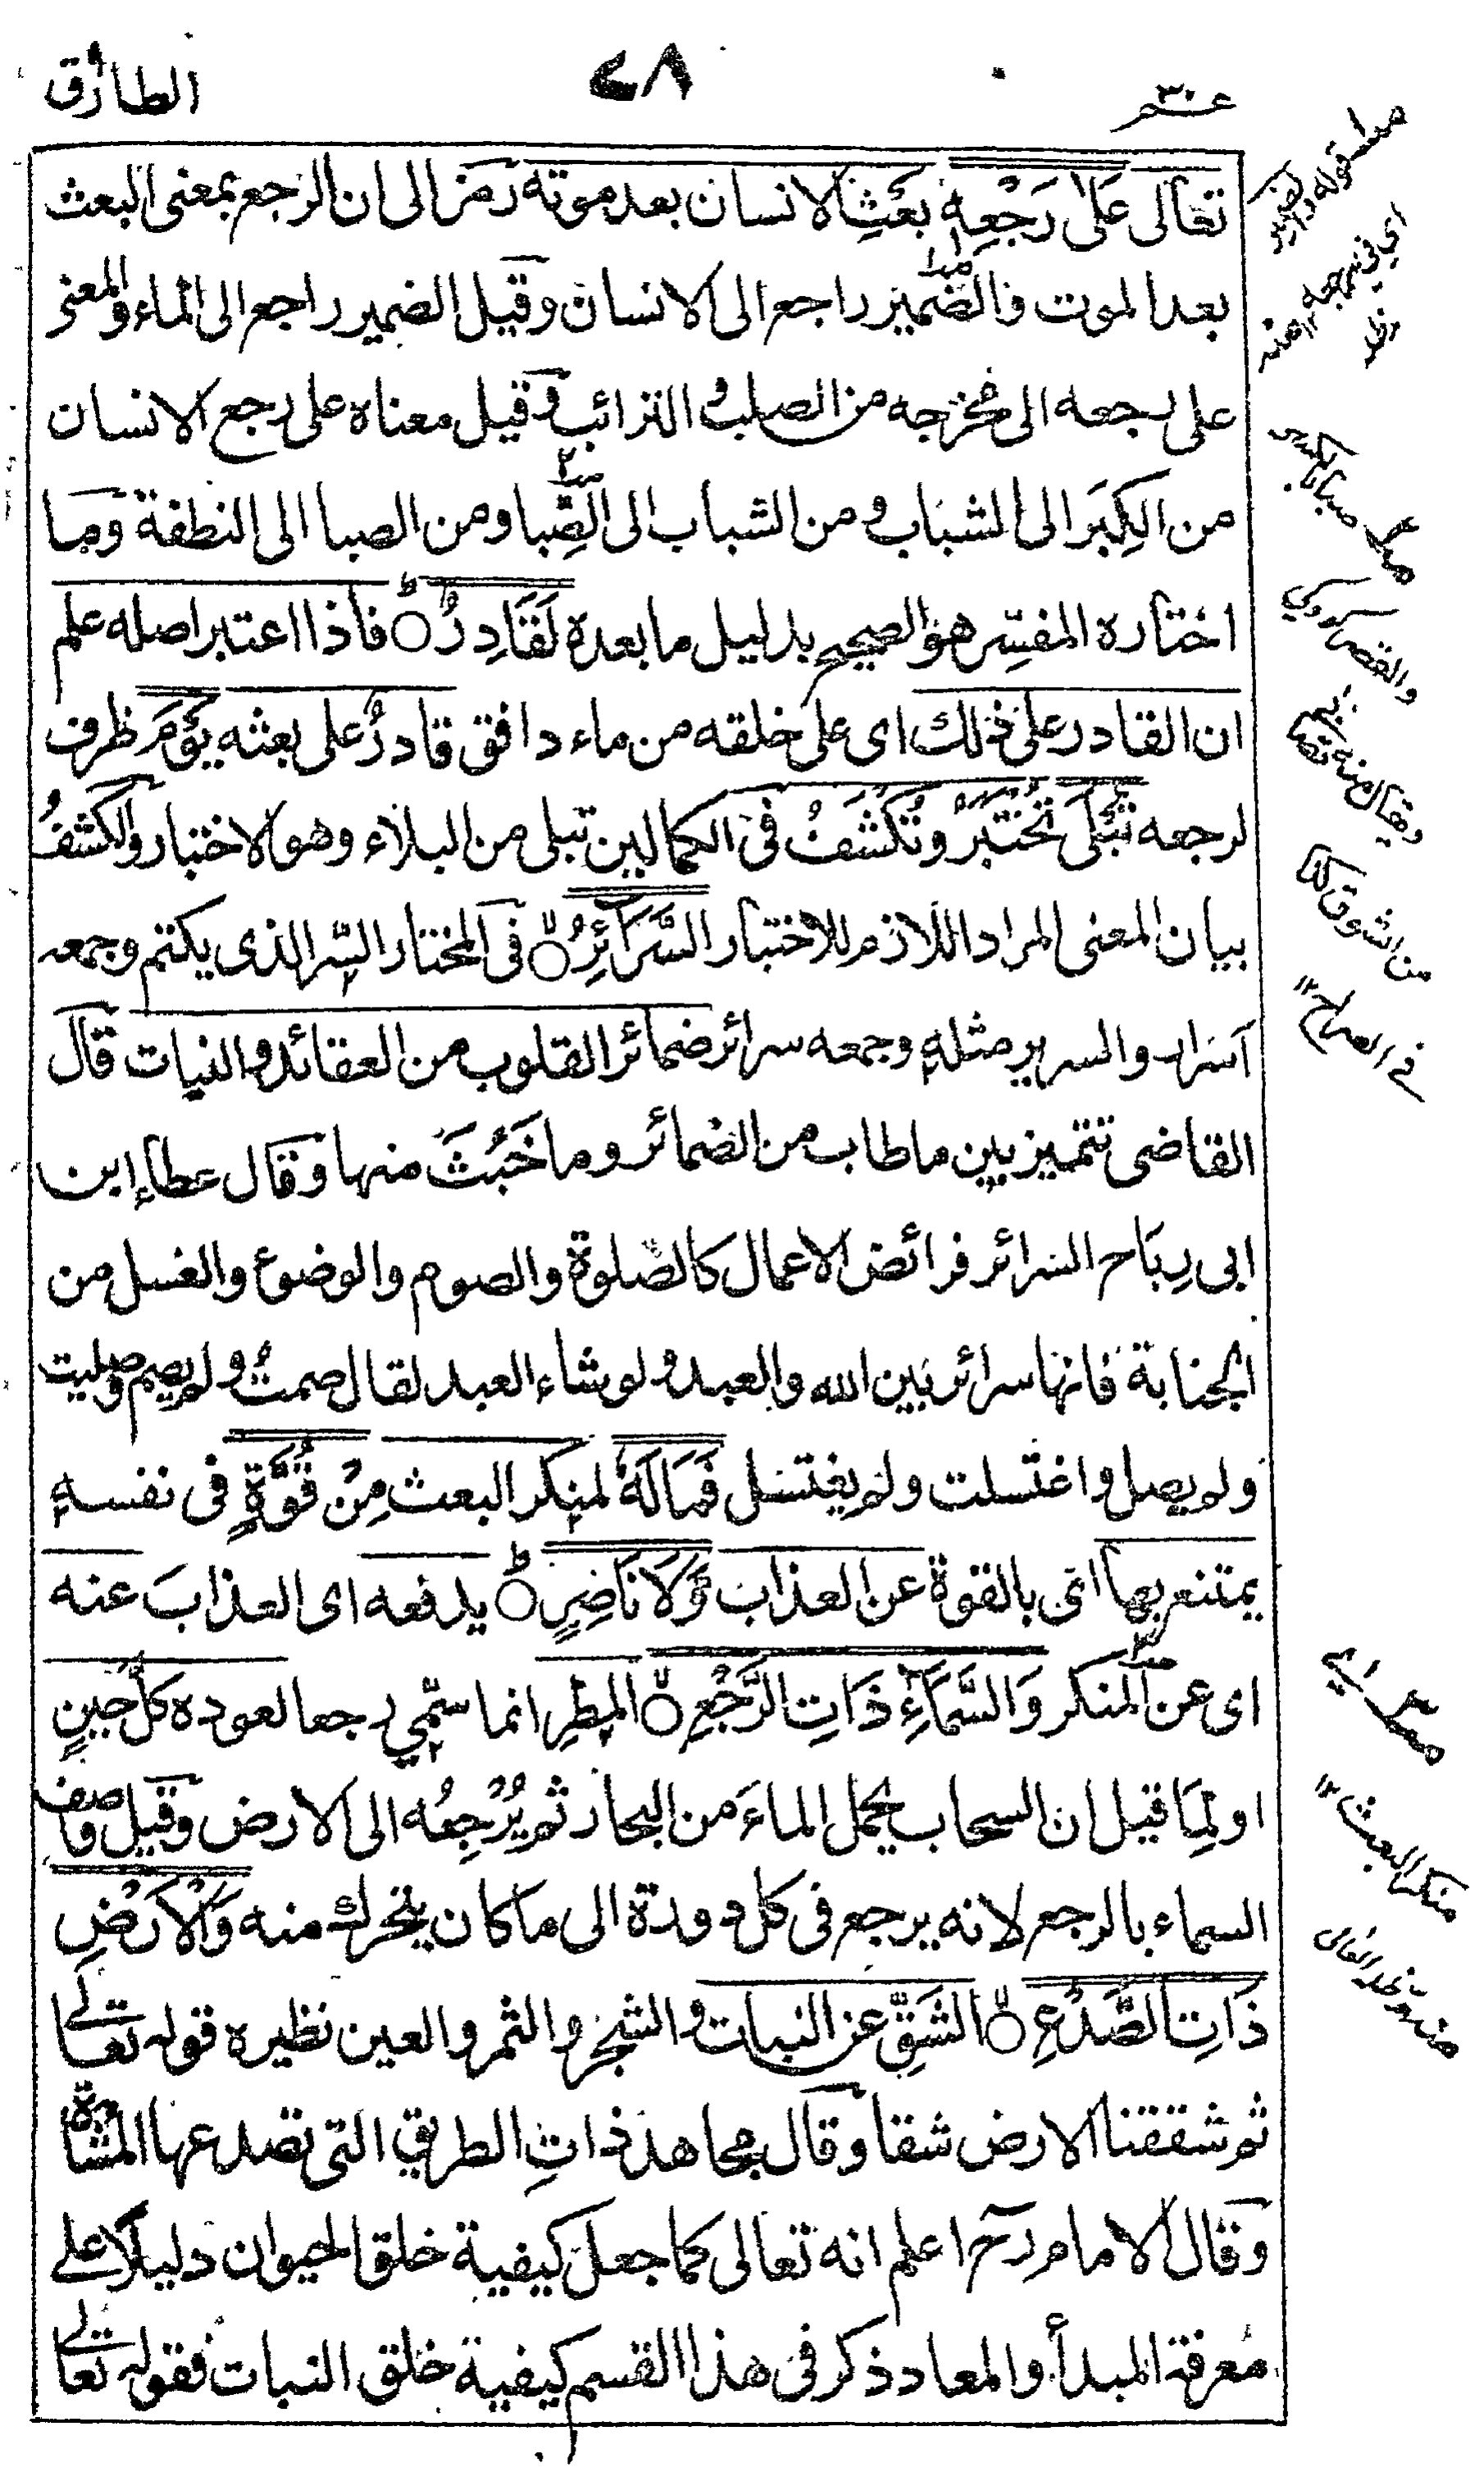 عم ٣٠
٢٨
الطارق
تعالى عَلٰى رَجْعِهٖ بعْثِ الانسان بعد موته رمز الى ان الرجع بمعنى البعث
بعد الموت والضمير راجع الى الانسان وقيل الضمير راجع الى الماء والمعنى
على رجعه الى مخرجه من الصلب و الترائب وقيل معناه على رجع الانسان
من الكِبَر الى الشباب و من الشباب الى الصِّبا ومن الصبا الى النطفة وما
اختاره المفسِّر هو الصحيح بدليل ما بعده لَقَادِرٌ ؕ فاذا اعتبر اصله علم
ان القادر على ذلك اى على خلقه من ماء دافق قادرٌ على بعثه يَوْمَ ظرف
لرجعه تُبْلَى تُخْتَبَرُ وتُكْشَفُ فى الكمالين تبلى من البلاء وهو الاختبار والكشفُ
بيان المعنى المراد اللازم للاختبار السَّرَآئِرُ ۙ فى المختار السّر الذى يكتم وجمعه
اسرار والسرير مثله وجمعه سرائر ضمائر القلوب من العقائد والنيات قال
القاضى تتميز بين ما طاب من الضمائر وما خَبُثَ منها وقال عطاء ابن
ابى رِبَاح السرائر فرائض الاعمال كالصّلوة والصوم والوضوء والغسل من
الجنابة فانها سرائر بين الله والعبد ولو شاء العبد لقال صمتُ ولم يصم وصليت
ولم يصل و اغتسلت ولم يغتسل فَمَا لَهٗ لمنكر البعث مِنْ قُوَّةٍ فى نفسه
يمتنع بها اى بالقوة عن العذاب وَّلَا نَاصِرٍ ؕ يدفعه اى العذابَ عنه
اى عن المنكر وَالسَّمَآءِ ذَاتِ الرَّجْعِ ۙ المطرِ انما سمّي رجعا لعوده كلّ حينٍ
او لِمَا قيل ان السحاب يحمل الماءَ من البحار ثم يُرْجِعُه الى الارض وقيل وصف
السماء بالرجع لانه يرجع فى كل دورة الى ما كان يتحرك منه وَالْاَرْضِ
ذَاتِ الصَّدْعِ ۙ الشَقِّ عن النبات و الشجر و الثمر و العين نظيره قوله تعالى
ثم شققنا الارض شقا وقال مجاهد ذاتِ الطريق التى تصدعها المشاة
وقال الامام رح اعلم انه تعالى كما جعل كيفية خلق الحيوان دليلا على
معرفة المبدأ والمعاد ذكر فى هذا القسم كيفية خلق النبات فقوله تعالى
منكر البعث ١٢
فى الصراح ١٢